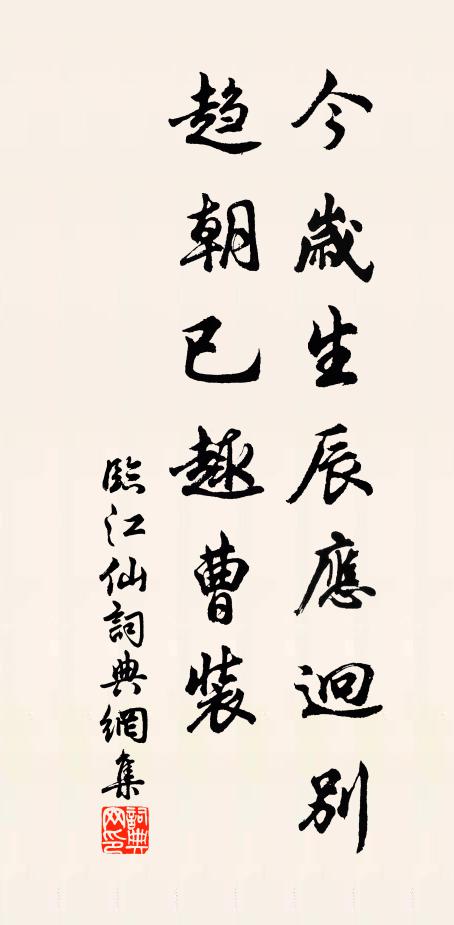 今歲生辰應迥別
趨朝已趣曹裝
臨江仙詞典網集
詞典網印